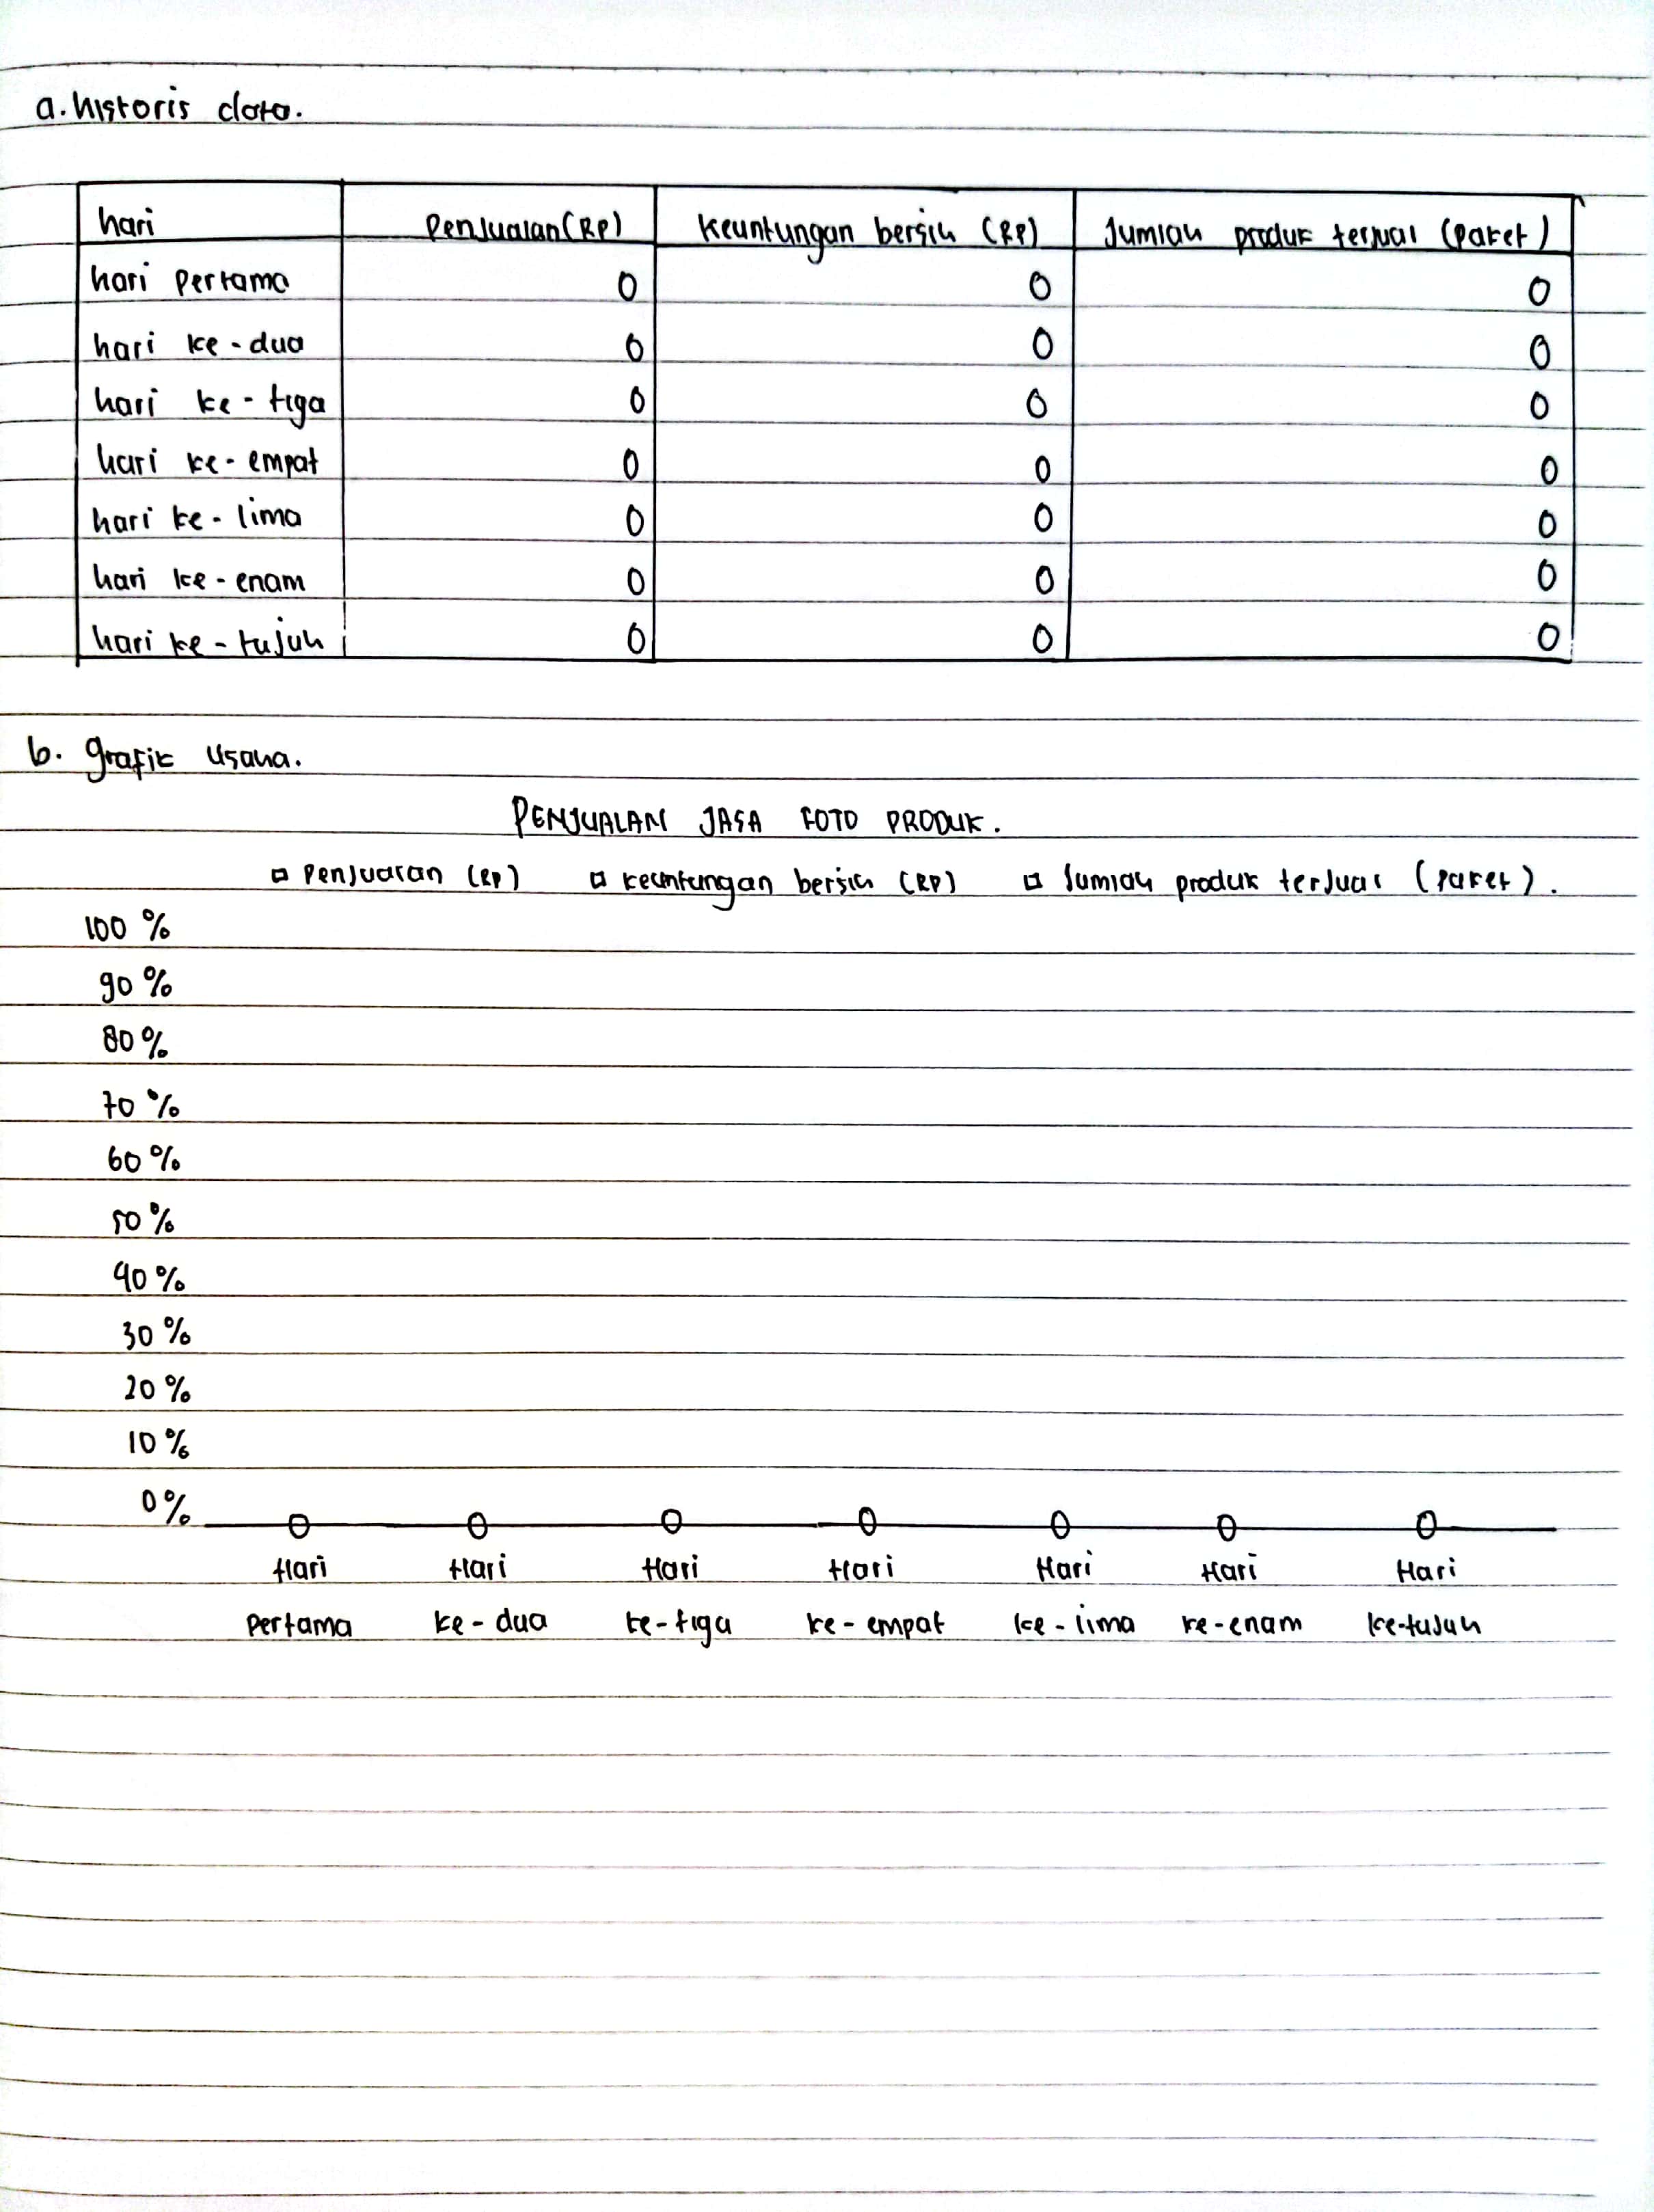 a. historis data.
hari Penjualan (RP) keuntungan bersih (RP) Jumlah produk terjual (paket)
hari pertama 0 0 0
hari ke-dua 0 0 0
hari ke-tiga 0 0 0
hari ke-empat 0 0 0
hari ke-lima 0 0 0
hari ke-enam 0 0 0
hari ke-tujuh 0 0 0
b. grafik usaha.
PENJUALAN JASA FOTO PRODUK.
Penjualan (RP) keuntungan bersih (RP) Jumlah produk terjual (paket).
100 %
90 %
80 %
70 %
60 %
50 %
40 %
30 %
20 %
10 %
0 % 0 0 0 0 0 0 0
Hari Hari Hari Hari Hari Hari Hari
Pertama ke-dua ke-tiga ke-empat ke-lima ke-enam ke-tujuh